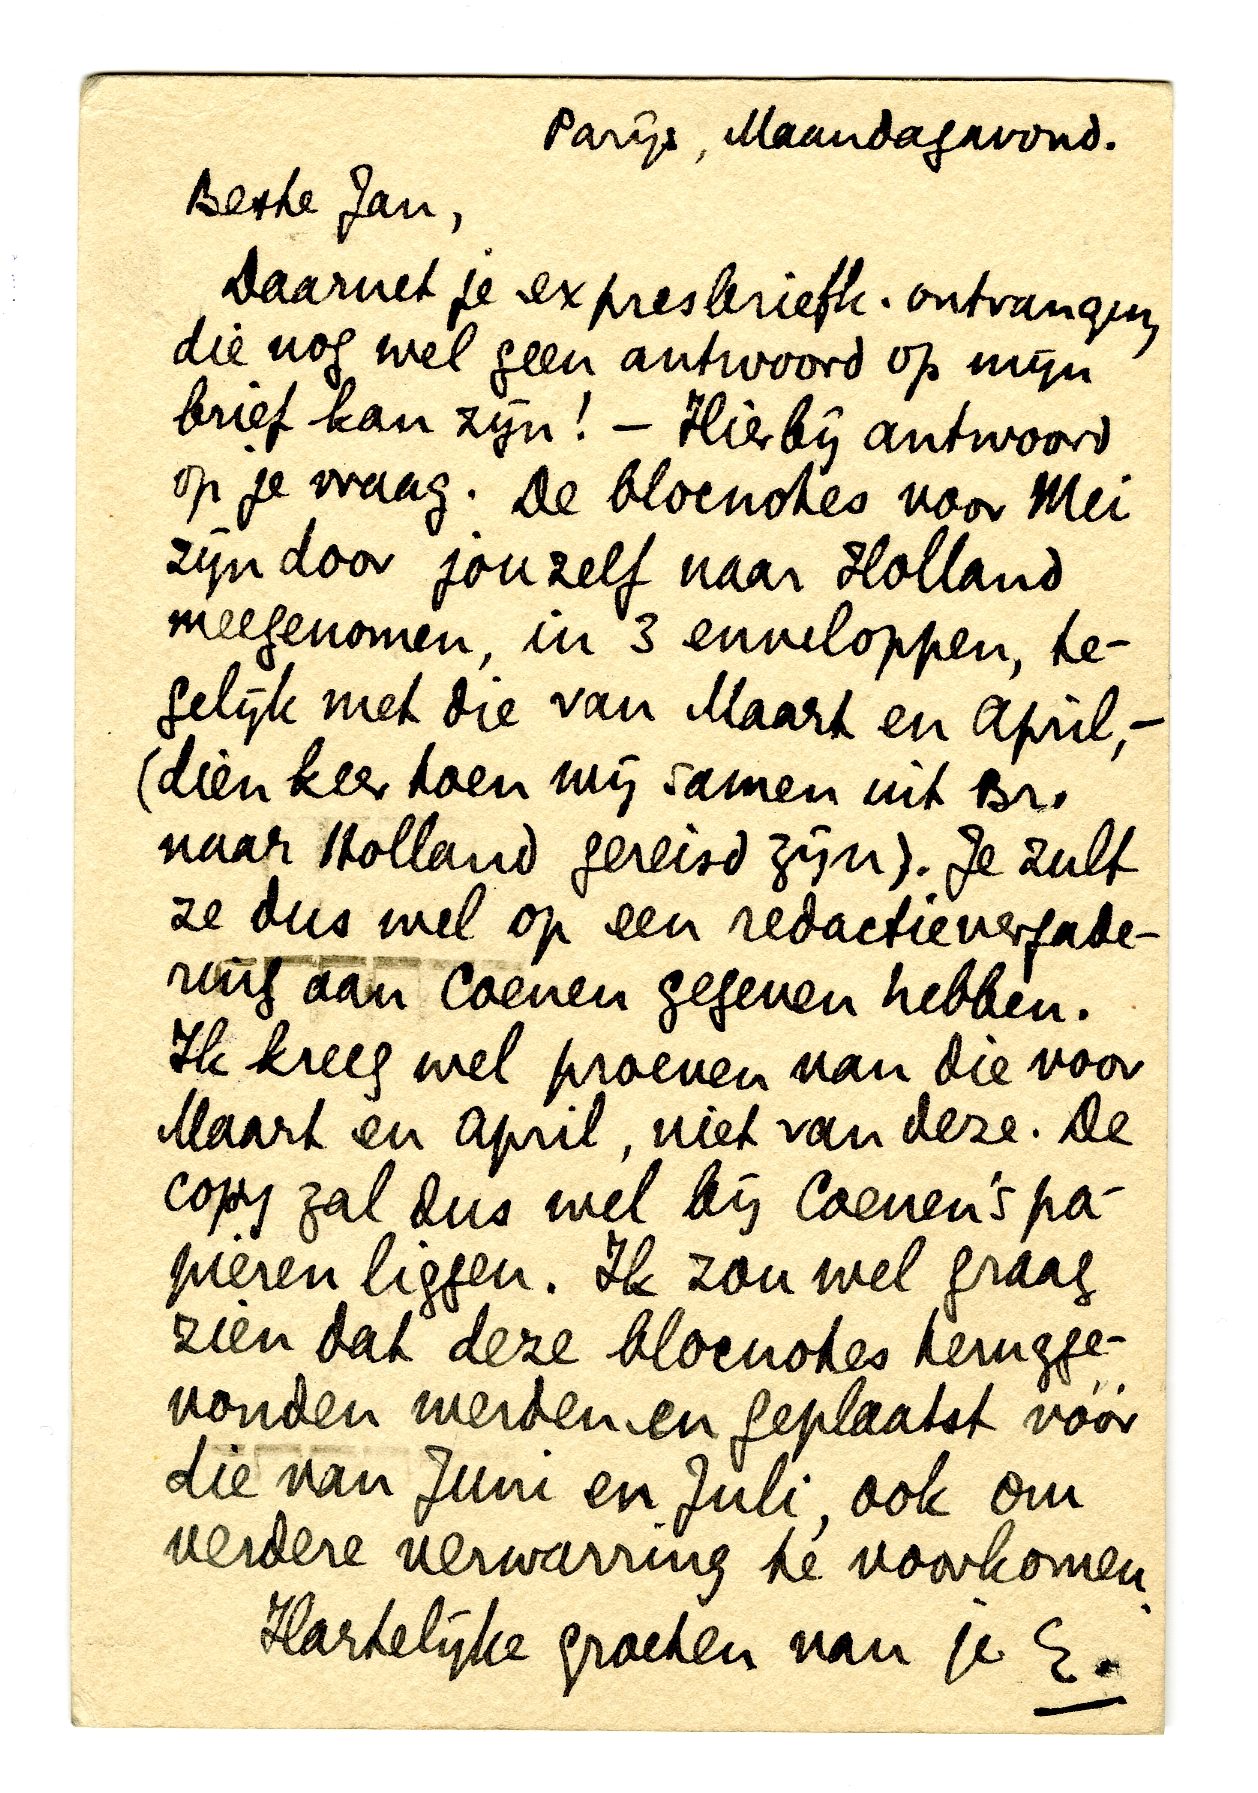 Parijs, Maandagavond.
Beste Jan,
Daarnet je expresbriefk. ontvangen,
die nog wel geen antwoord op mijn
brief kan zijn! – Hierbij antwoord
op je vraag. De blocnotes voor Mei
zijn door jouzelf naar Holland
meegenomen, in 3 enveloppen, te-
gelijk met die van Maart en April, –
(dien keer toen wij samen uit Br.
naar Holland gereisd zijn). Je zult
ze dus wel op een redactievergade-
ring aan Coenen gegeven hebben.
Ik kreeg wel proeven van die voor
Maart en April, niet van deze. De
copy zal dus wel bij Coenen's pa-
pieren liggen. Ik zou wel graag
zien dat deze blocnotes terugge-
vonden werden en geplaatst vóór
die van Juni en Juli, ook om
verdere verwarring te voorkomen.
Hartelijke groeten van je E.